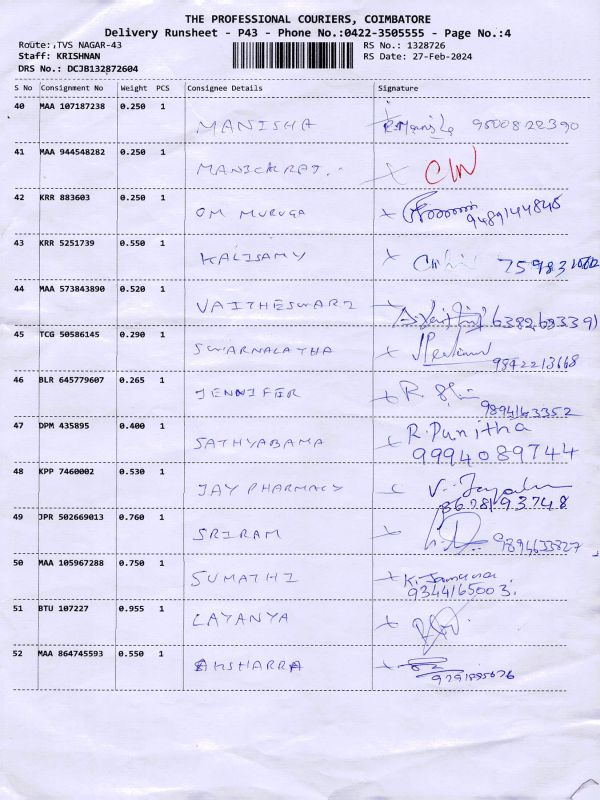 THE PROFESSIONAL COURIERS, COIMBATORE
Delivery Runsheet - P43 - Phone No.:0422-3505555 - Page No.:4
Route:,TVS NAGAR-43 RS No.: 1328726
Staff: KRISHNAN RS Date: 27-Feb-2024
DRS No.: DCJB132872604
S No Consignment No Weight PCS Consignee Details Signature
40 MAA 107187238 0.250 1
MANISHA 9500822390
41 MAA 944548282 0.250 1
MANICKRAJ..
42 KRR 883603 0.250 1
OM MURUGA 9489144845
43 KRR 5251739 0.550 1
KALISAMY
44 MAA 573843890 0.520 1
VAITHESWARI
45 TCG 50586145 0.290 1
SWARNALATHA
9842213668
46 BLR 645779607 0.265 1
JENNIFER
9894163352
47 DPM 435895 0.400 1
SATHYABAMA R. Punitha
9994089744
48 KPP 7460002 0.530 1
JAY PHARMACY
49 JPR 502669013 0.760 1
SRIRAM 9894633827
50 MAA 105967288 0.750 1
SUMATHI
9344165003.
51 BTU 107227 0.955 1
LAYANYA
52 MAA 864745593 0.550 1
AKSHARRA